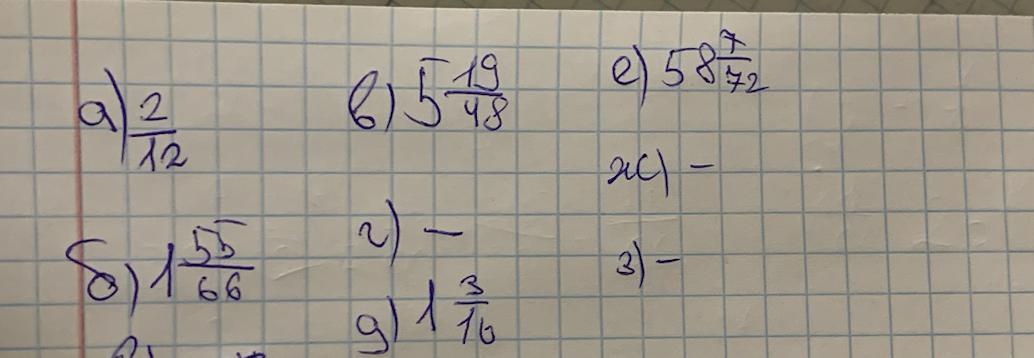 а) 2/12
б) 1 55/66
в) 5 19/48
г) —
д) 1 3/16
е) 58 7/72
ж) —
з) —